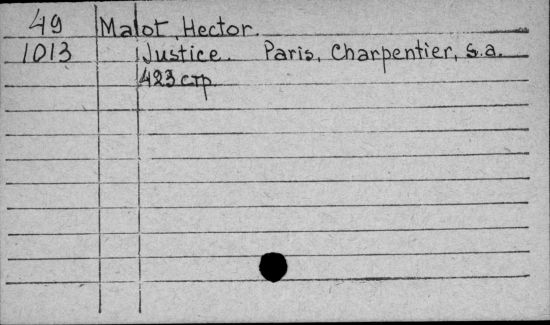 49 Malot, Hector.
1013 Justice. Paris, Charpentier, s.a.
423 стр.